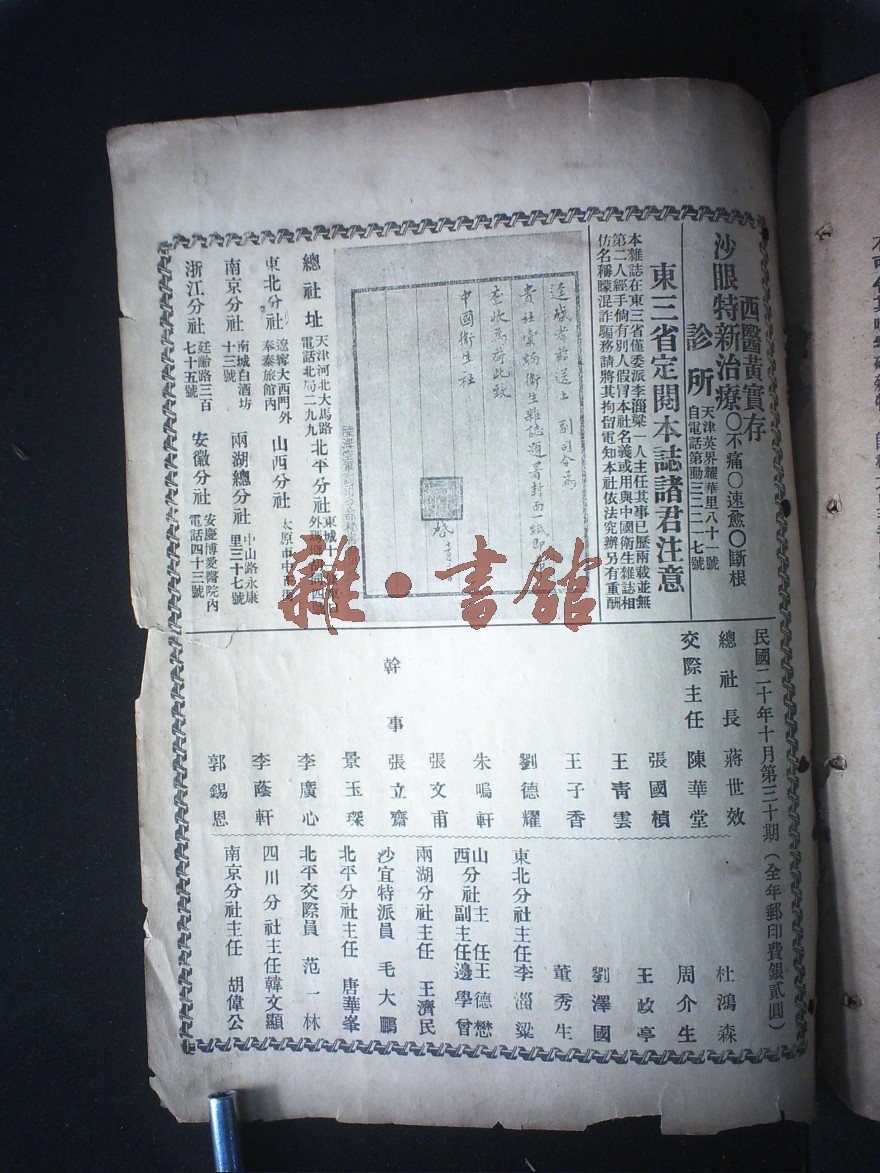 西醫黃實存
沙眼特新治療〇不痛〇速愈〇斷根
診所
天津英界耀華里八十一號
自電話第動三三二一七號
東三省定閱本誌諸君注意
本雜誌在東三省僅委派李溜粱一人主任其事已歷兩載並無
第二人經手倘有別人假冒本社名義或用與中國衛生雜誌相
仿名稱矇混詐騙務請將其拘留電知本社依法究辦另有重酬
逕啟者茲送上 副司令為
貴社彙炳衛生雜誌題署封面一紙即
查收為荷此致
中國衛生社
啓
總社址
天津河北大馬路
電話北局二九九
北平分社
東城十
東北分社
遼寧大西門外
奉泰旅館內
山西分社
太原市中
南京分社
南城白酒坊
十三號
兩湖總分社
中山路永康
里三十七號
浙江分社
延齡路三百
七十五號
安徽分社
安慶博愛醫院內
電話四十三號
民國二十年十月第三十期(全年郵印費銀貳圓)
總社長 蔣世效
交際主任 陳華堂
張國楨
王青雲
王子香
劉德耀
朱鳴軒
張文甫
幹事 張立齋
景玉琛
李廣心
李蔭軒
郭錫恩
杜鴻森
周介生
王政亭
劉澤國
董秀生
東北分社主任 李溜粱
山西分社主任 王德懋
副主任 邊學曾
兩湖分社主任 王濟民
沙宜特派員 毛大鵬
北平分社主任 唐華峯
北平交際員 范一林
四川分社主任 韓文顯
南京分社主任 胡偉公
雜·書館